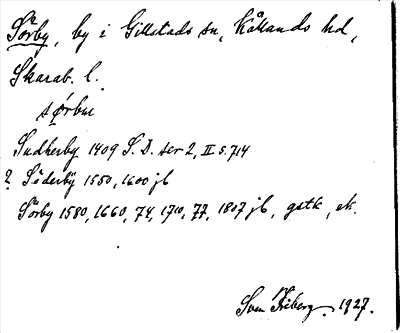 Sörby, by i Gillstads sn, Kållands hd,
Skarab. l.
sørbu
Sudherby 1409 S. D. ser 2, II s. 714
? Söderbÿ 1550, 1600 jb
Sörby 1580, 1660, 74, 1710, 77, 1807 jb, gstk, ek.
Sven Friberg. 1927.